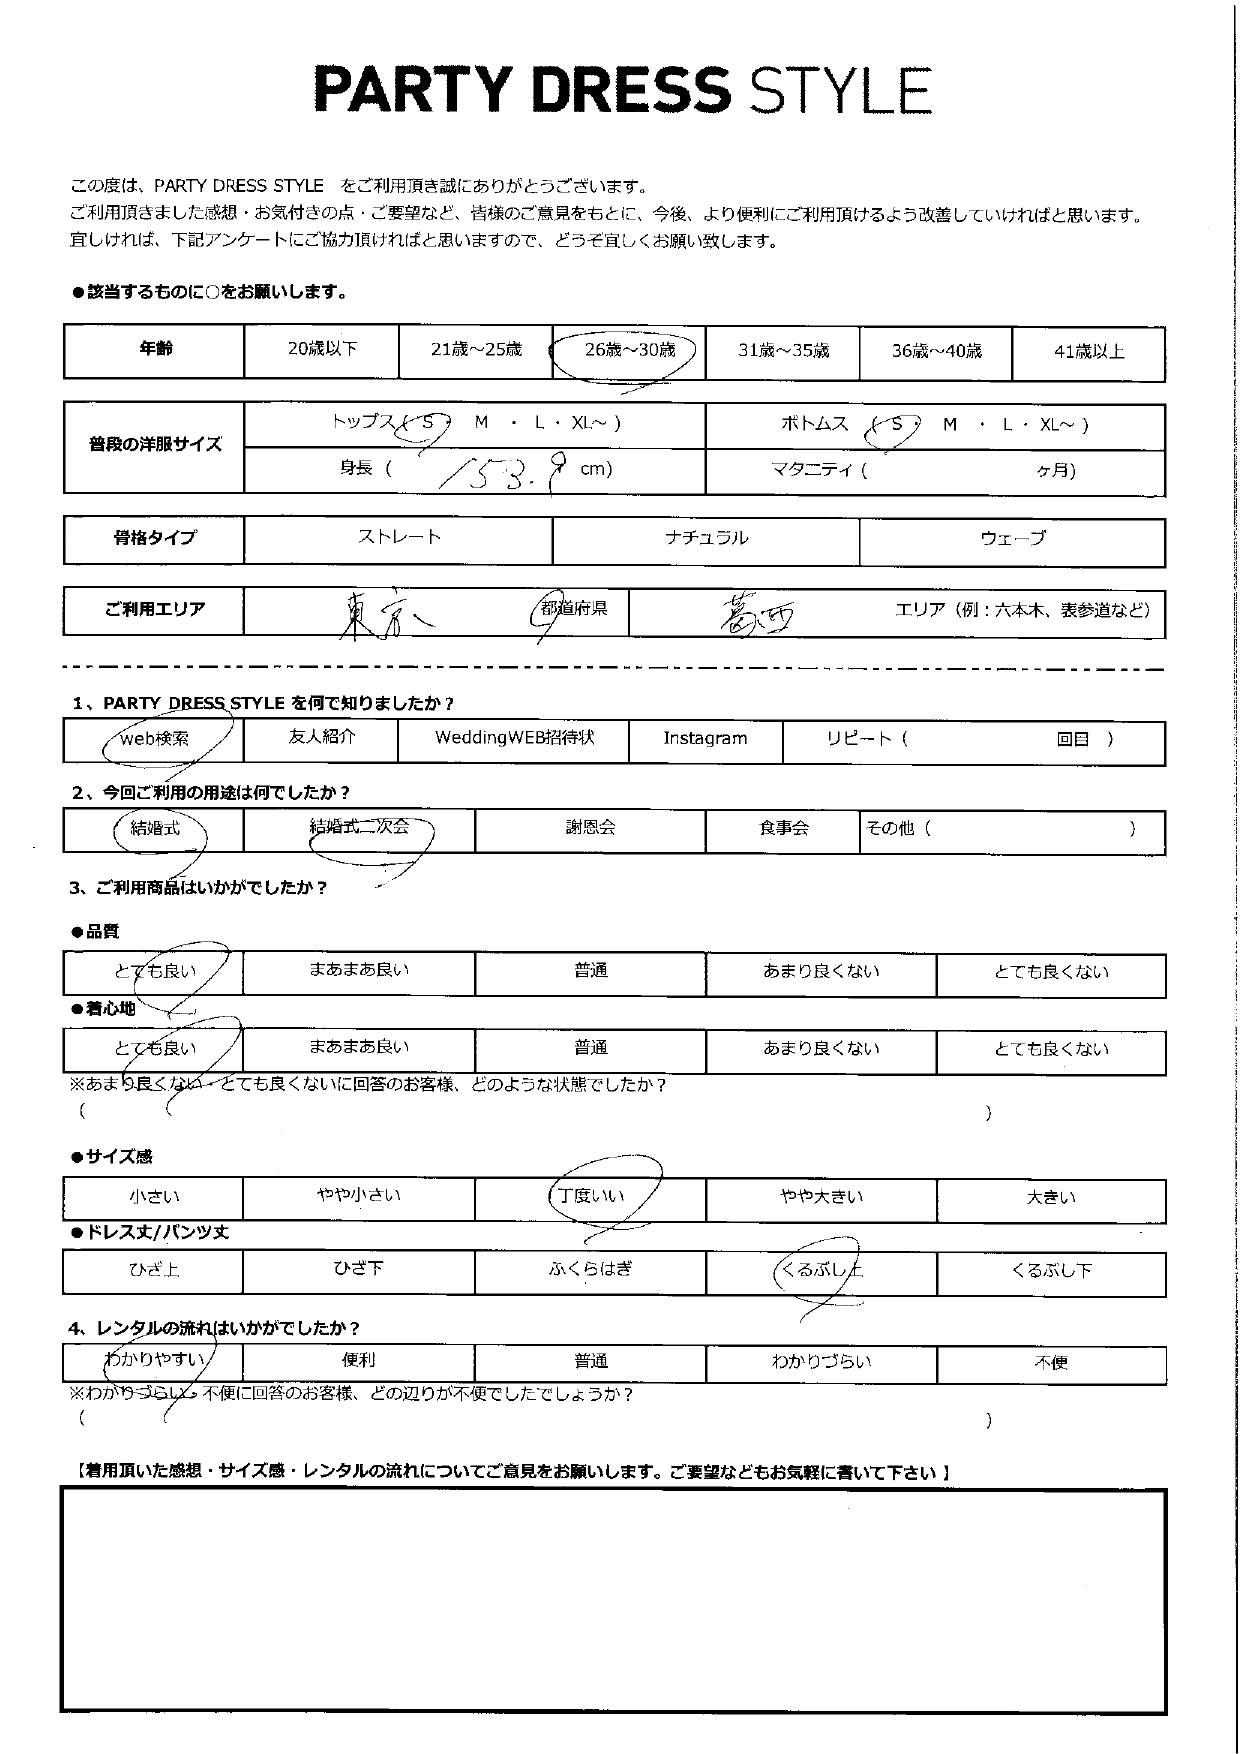 PARTY DRESS STYLE
この度は、PARTY DRESS STYLE をご利用頂き誠にありがとうございます。
ご利用頂きました感想・お気付きの点・ご要望など、皆様のご意見をもとに、今後、より便利にご利用頂けるよう改善していければと思います。
宜しければ、下記アンケートにご協力頂ければと思いますので、どうぞ宜しくお願い致します。
●該当するものに○をお願いします。
年齢 20歳以下 21歳～25歳 26歳～30歳 31歳～35歳 36歳～40歳 41歳以上
普段の洋服サイズ トップス( S ・ M ・ L ・ XL～ ) ボトムス ( S ・ M ・ L ・ XL～ )
身長 ( 153.9 cm) マタニティ ( ヶ月)
骨格タイプ ストレート ナチュラル ウェーブ
ご利用エリア 東京 都道府県 葛西 エリア（例：六本木、表参道など）
1、PARTY DRESS STYLE を何で知りましたか？
web検索 友人紹介 WeddingWEB招待状 Instagram リピート ( 回目 )
2、今回ご利用の用途は何でしたか？
結婚式 結婚式二次会 謝恩会 食事会 その他 ( )
3、ご利用商品はいかがでしたか？
●品質
とても良い まあまあ良い 普通 あまり良くない とても良くない
●着心地
とても良い まあまあ良い 普通 あまり良くない とても良くない
※あまり良くない・とても良くないに回答のお客様、どのような状態でしたか？
( )
●サイズ感
小さい やや小さい 丁度いい やや大きい 大きい
●ドレス丈/パンツ丈
ひざ上 ひざ下 ふくらはぎ くるぶし上 くるぶし下
4、レンタルの流れはいかがでしたか？
わかりやすい 便利 普通 わかりづらい 不便
※わかりづらい、不便に回答のお客様、どの辺りが不便でしたでしょうか？
( )
【着用頂いた感想・サイズ感・レンタルの流れについてご意見をお願いします。ご要望などもお気軽に書いて下さい 】